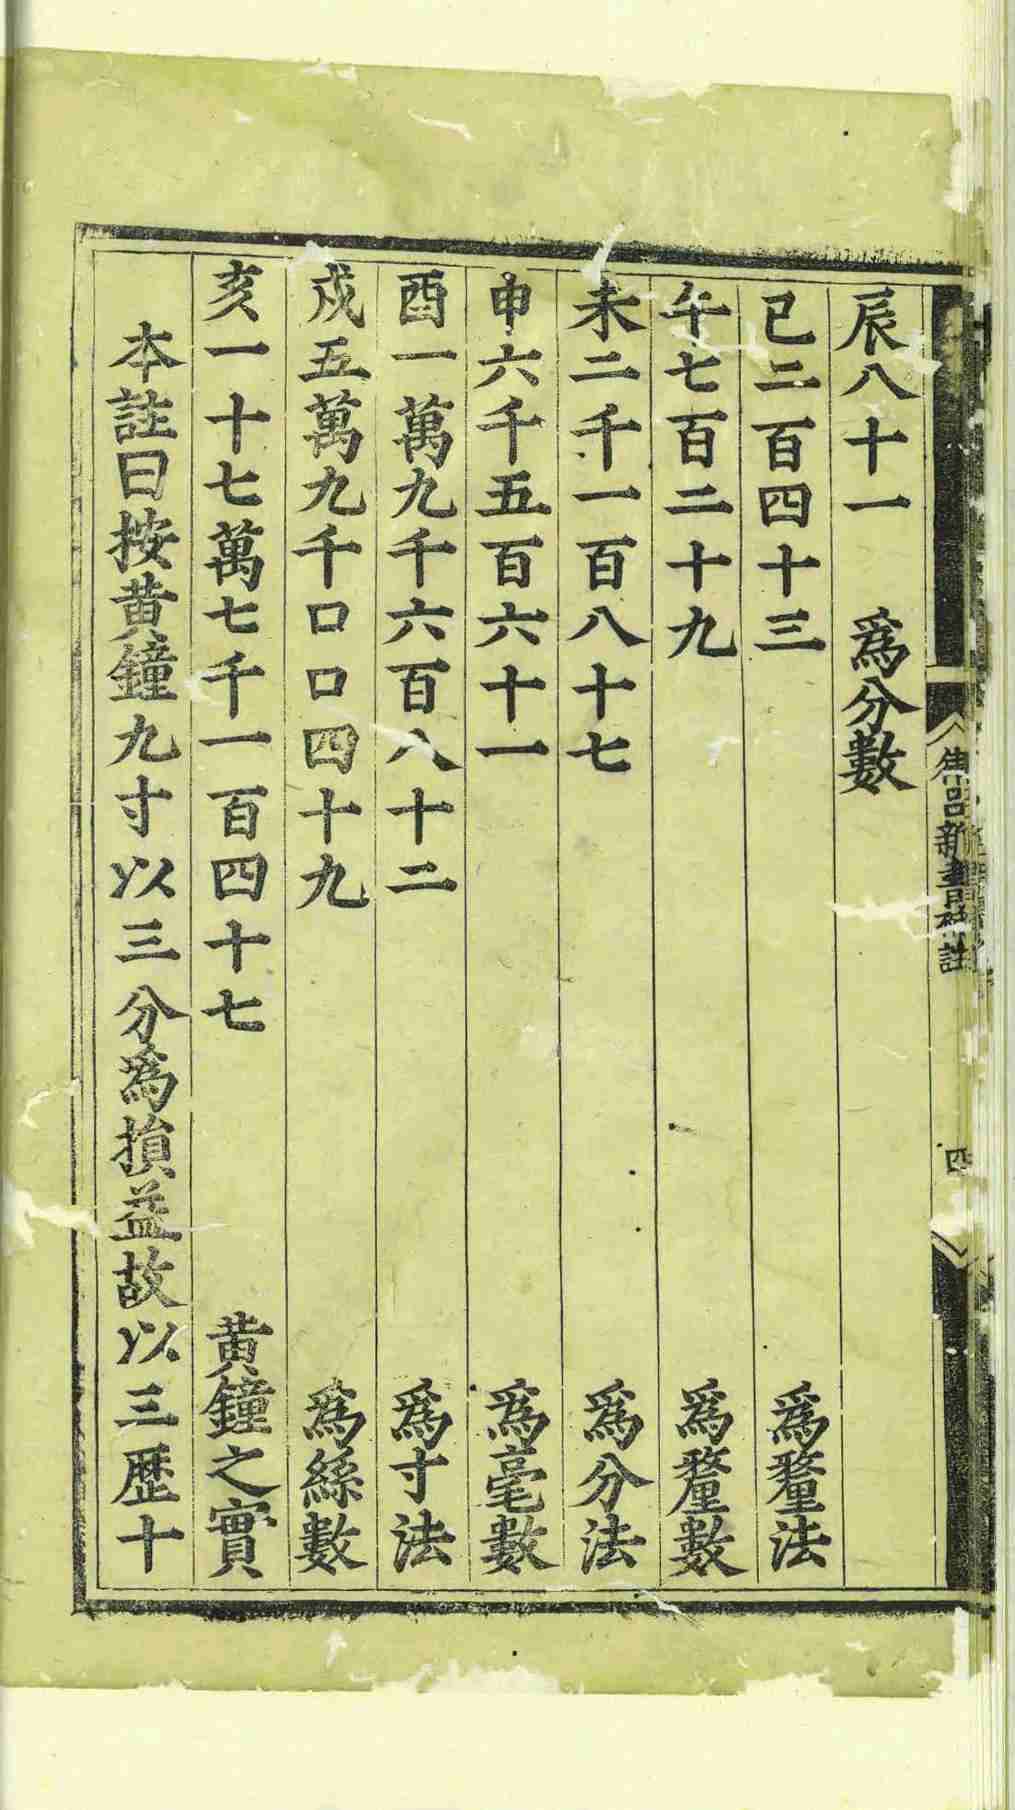 辰八十一　爲分數
巳二百四十三　爲釐法
午七百二十九　爲釐數
未二千一百八十七　爲分法
申六千五百六十一　爲毫數
酉一萬九千六百八十二　爲寸法
戍五萬九千口口四十九　爲絲數
亥一十七萬七千一百四十七　黄鐘之實
本註曰按黄鐘九寸以三分爲損益故以三歷十
新書
註
四